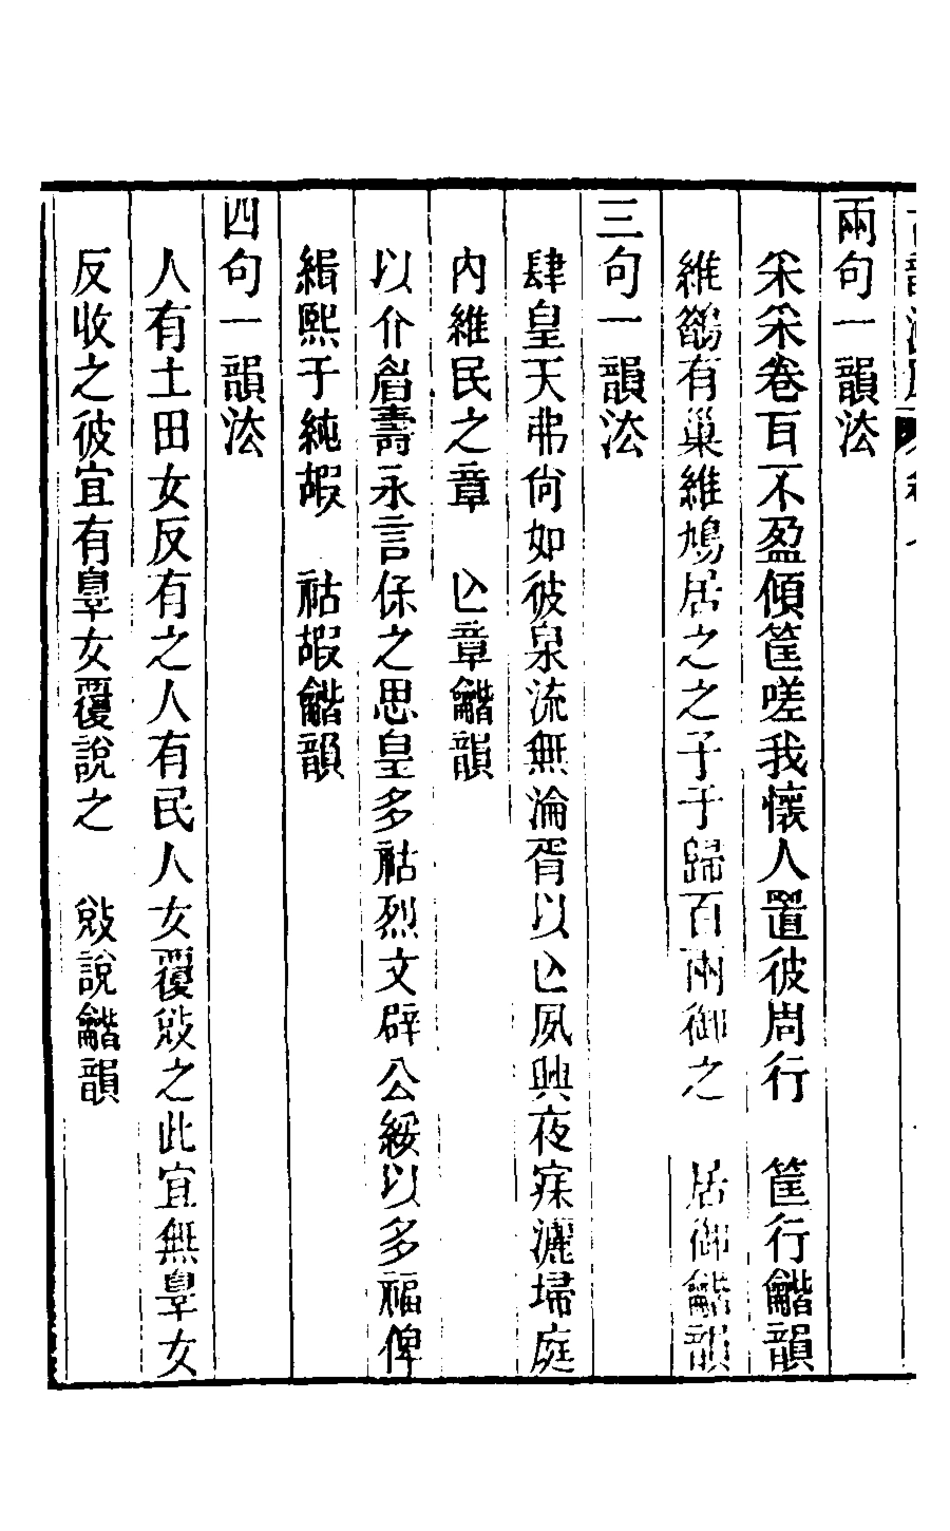 兩句一韻法
采采卷耳不盈傾筐嗟我懷人置彼周行　筐行龤韻
維鵲有巢維鳩居之之子于歸百兩御之　居御龤韻
三句一韻法
肆皇天弗尙如彼泉流無淪胥以亾夙興夜寐灑埽庭
內維民之章　亾章龤韻
以介眉壽永言保之思皇多祜烈文辟公綏以多福俾
緝熙于純嘏　祜嘏龤韻
四句一韻法
人有土田女反有之人有民人女覆敓之此宜無辠女
反收之彼宜有辠女覆說之　敓說龤韻